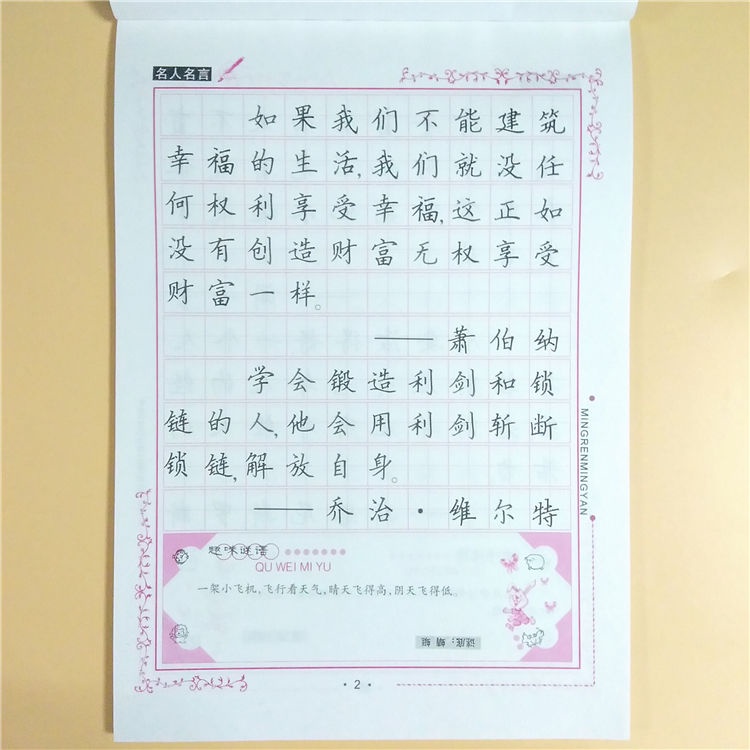 名人名言
如果我们不能建筑
幸福的生活,我们就没任
何权利享受幸福,这正如
没有创造财富无权享受
财富一样。
——萧伯纳
学会锻造利剑和锁
链的人,他会用利剑斩断
锁链,解放自身。
——乔治·维尔特
MINGRENMINGYAN
趣味谜语
QU WEI MI YU
一架小飞机,飞行看天气,晴天飞得高,阴天飞得低。
谜底:蜻蜓
·2·